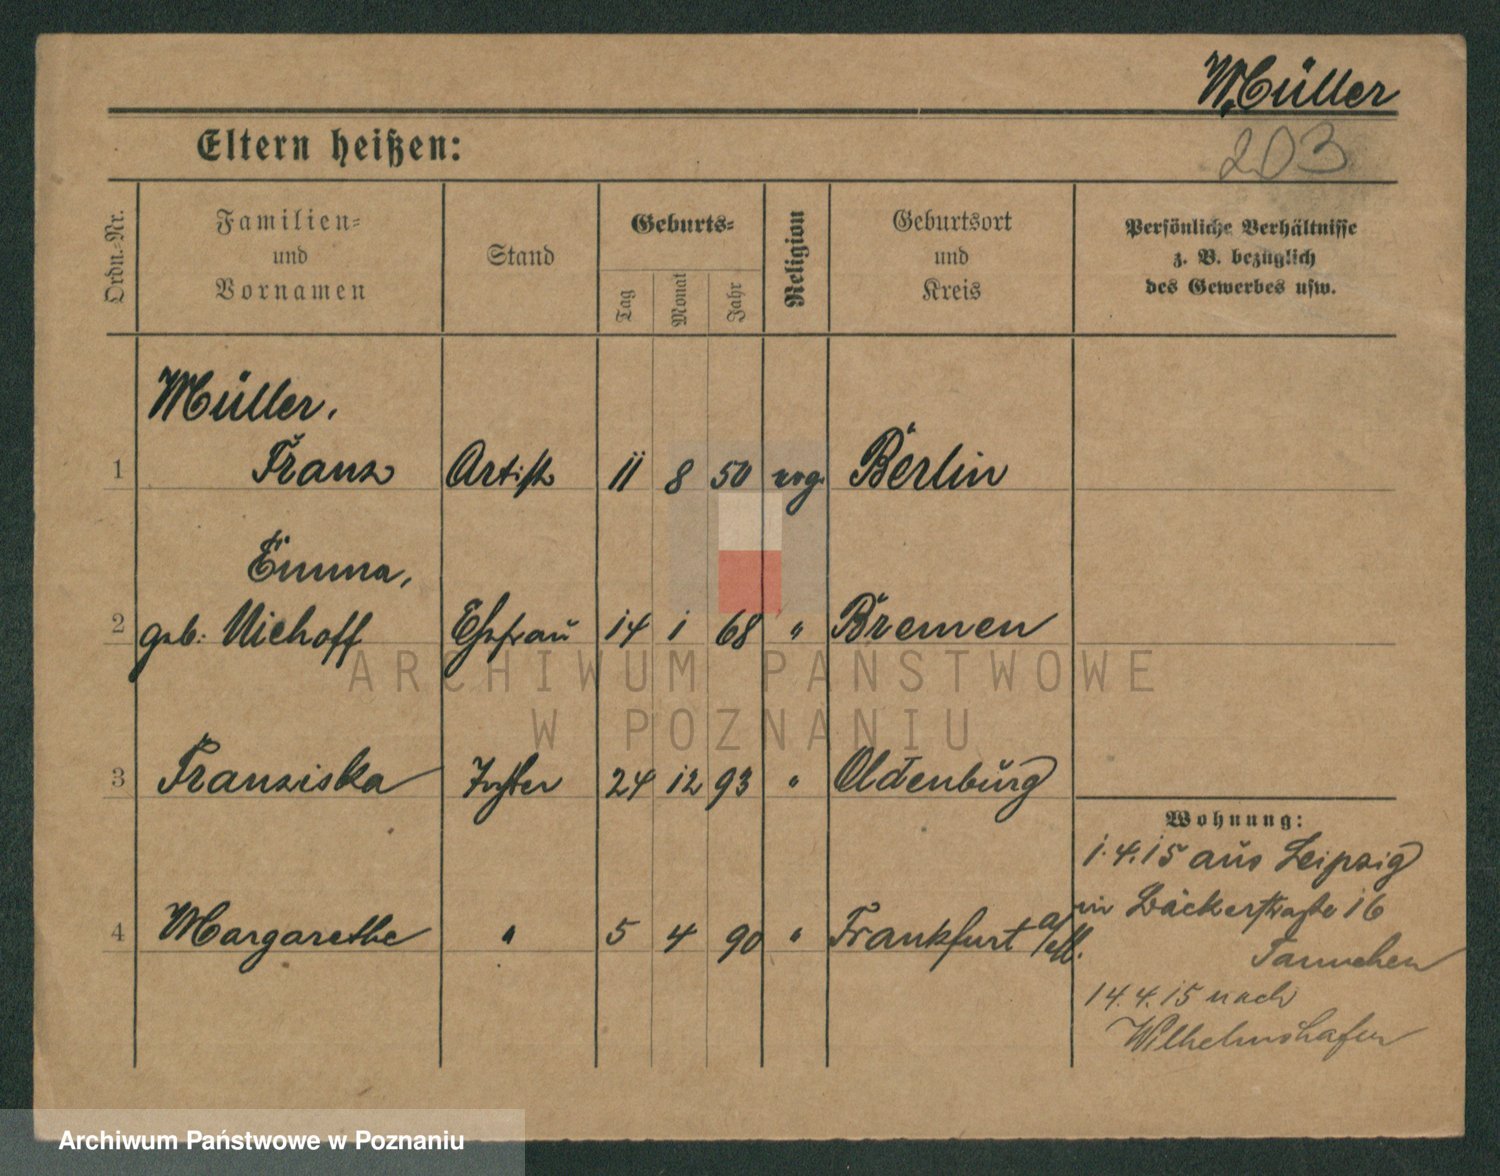 Müller
203
Eltern heißen:
Ordn.-Nr.
Familien-
und
Vornamen
Stand
Geburts-
Tag
Monat
Jahr
Religion
Geburtsort
und
Kreis
Persönliche Verhältnisse
z. B. bezüglich
des Gewerbes usw.
Müller,
1 Franz Artist 11 8 50 evg. Berlin
Emma,
2 geb. Niehoff Ehefrau 14 1 68 " Bremen
3 Franziska Tochter 24 12 93 " Oldenburg
4 Margarethe " 5 4 90 " Frankfurt a/M.
Wohnung:
1.4.15 aus Leipzig
in Bäckerstraße 16
14.4.15 nach
Wilhelmshafen
ARCHIWUM PAŃSTWOWE
W POZNANIU
Archiwum Państwowe w Poznaniu